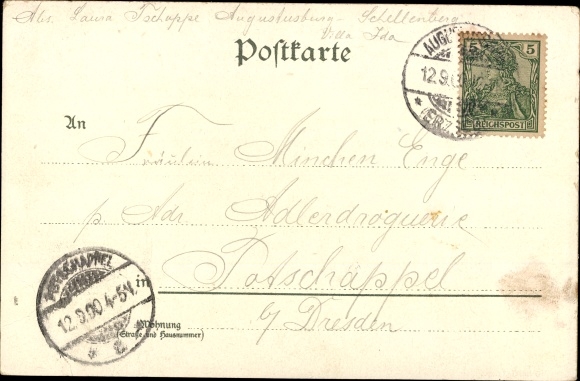 Abs. Laura Tschappe Augustusburg - Schellenberg
Villa Ida
Postkarte
5 5
REICHSPOST
12.9.00
An
Fräulein Minchen Enge
p. Adr. Adlerdroguerie
Potschappel
in
b/ Dresden
POTSCHAPPEL
12.9.00 4-5N.
Wohnung
(Straße und Hausnummer)